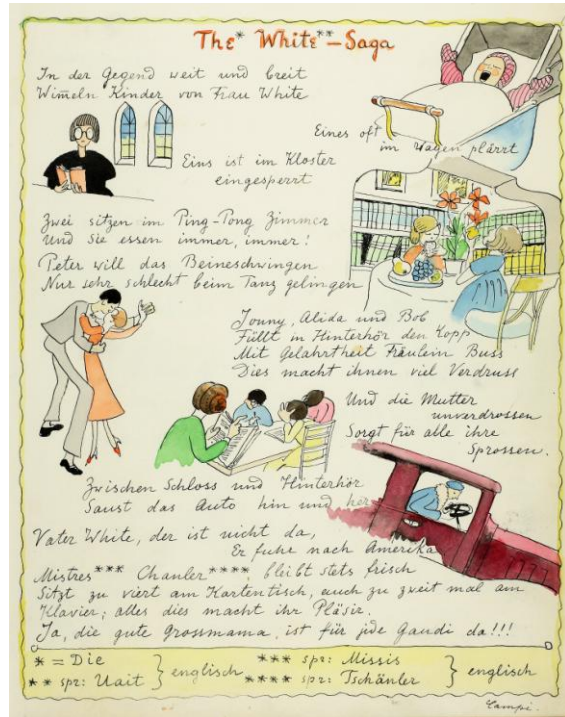 The* White** - Saga
In der Gegend weit und breit
Wimmeln Kinder von Frau White
Eines oft
im Wagen plärrt
Eins ist im Kloster
eingesperrt
Zwei sitzen im Ping-Pong Zimmer
Und sie essen immer, immer!
Peter will das Beineschwingen
Nur sehr schlecht beim Tanz gelingen
Jonny, Alida und Bob
Füllt in Hinterhör den Kopp
Mit Gelahrtheit Fräulein Buss
Dies macht ihnen viel Verdruss
Und die Mutter
unverdrossen
Sorgt für alle ihre
Sprossen.
Zwischen Schloss und Hinterhör
Saust das Auto hin und her
Vater White, der ist nicht da,
Er fuhr nach Amerika
Mistres*** Chanler**** bleibt stets frisch
Sitzt zu viert am Kartentisch, auch zu zweit mal am
Klavier; alles dies macht ihr Pläsir.
Ja, die gute Grossmama, ist für jede Gaudi da!!!
* = Die
** spr: Uait } englisch
*** spr: Missis
**** spr: Tschänler } englisch
Campi.